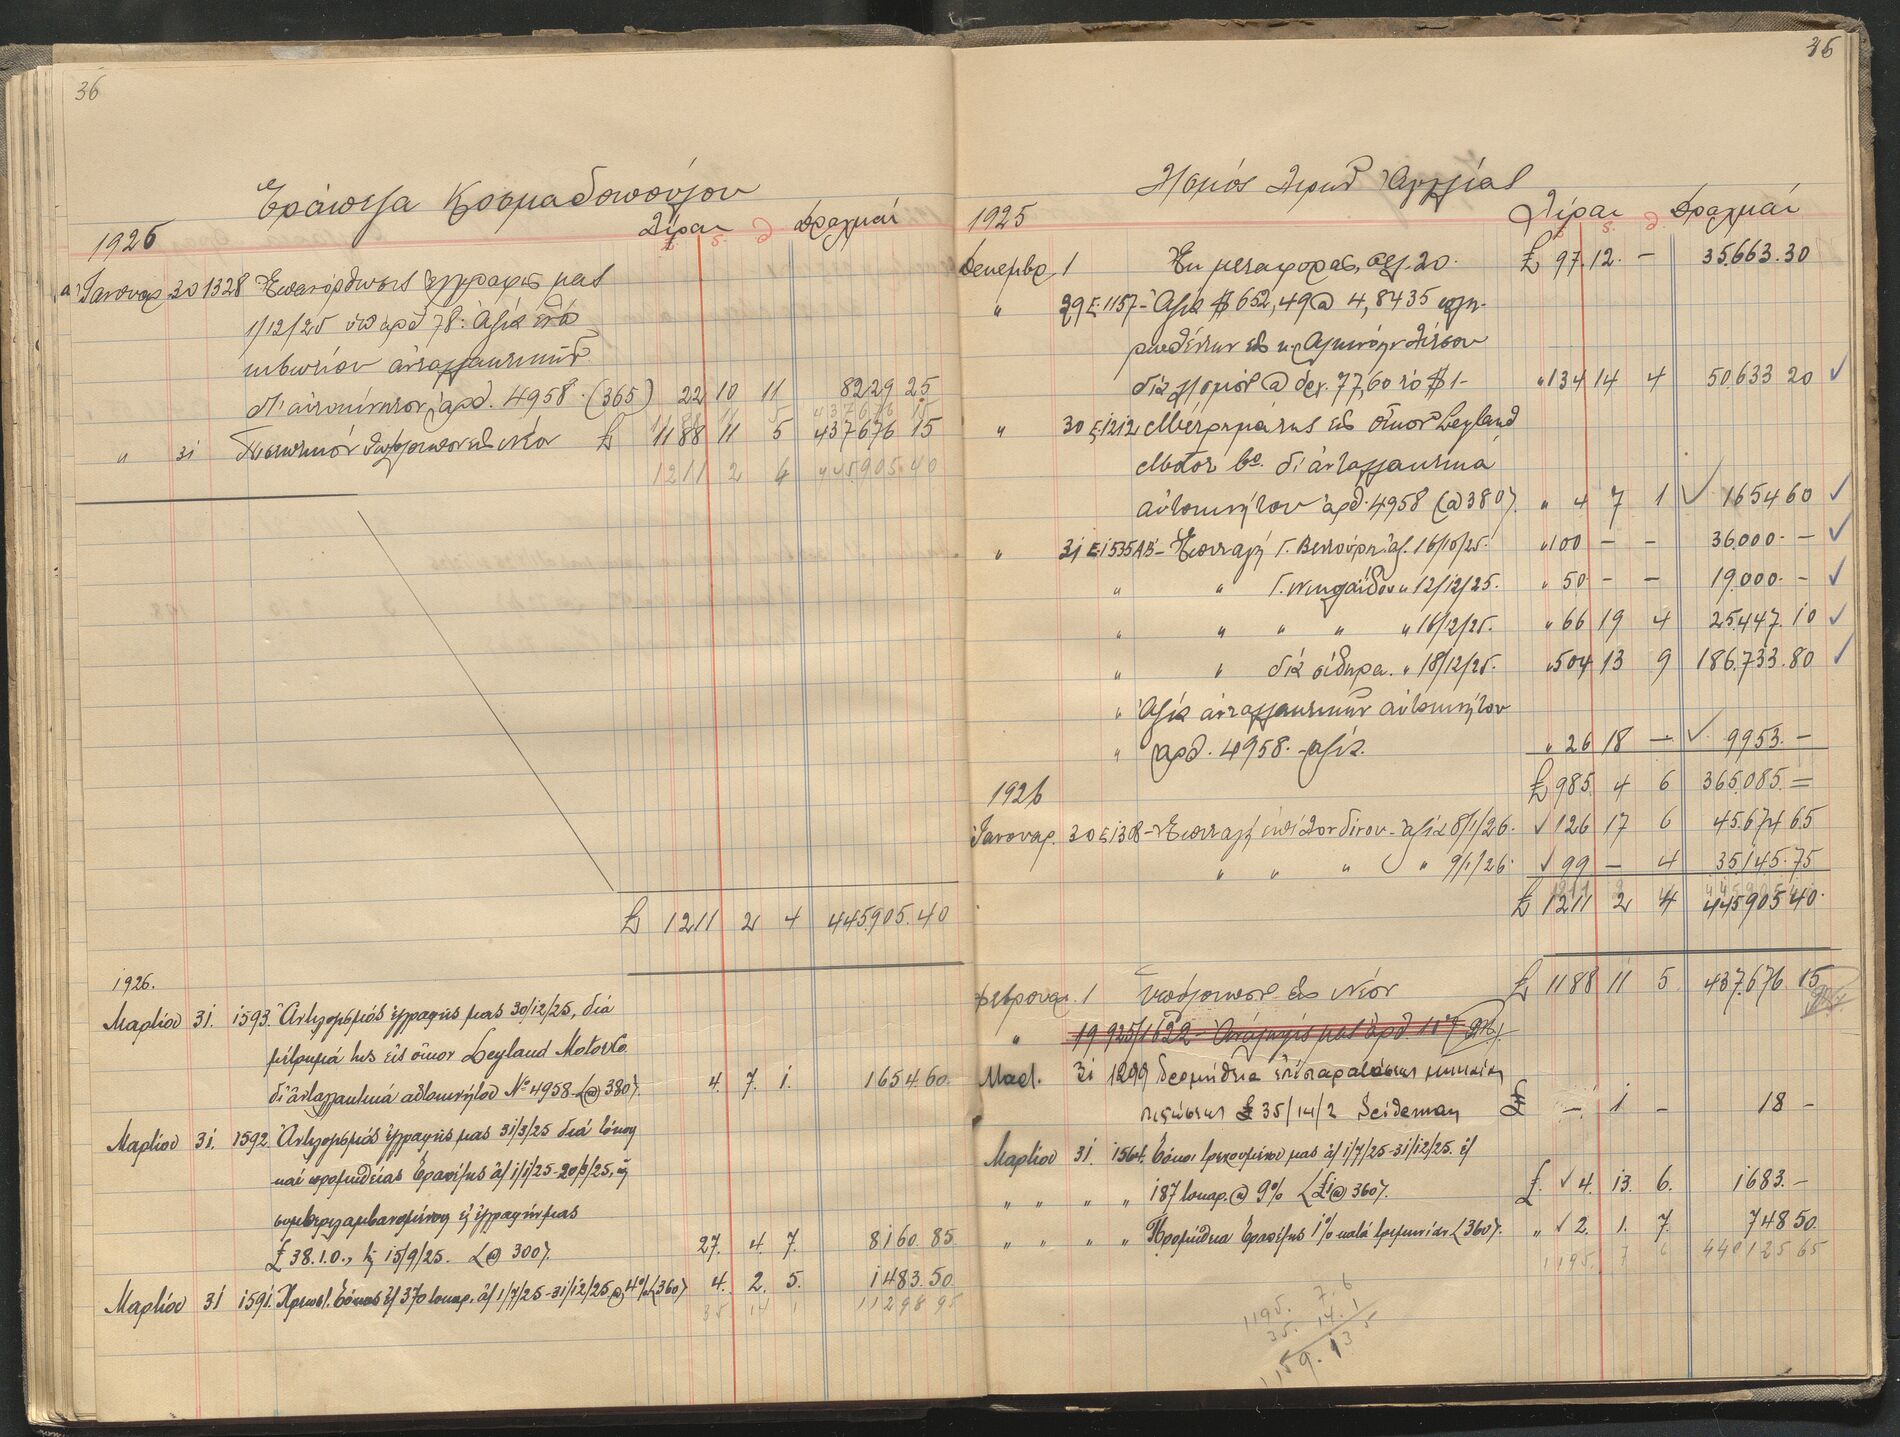 36
Τράπεζα Κοσμαδοπούλου
1926
Λίραι s. d Δραχμαί
Ἰανουαρ 30 1328 Ἐπανόρθωσις ἐγγραφῆς μας
1/12/25 ὑπ' ἀρθ 78: Ἀξία
κιβωτίου ἀνταλλακτικῶν
δι' αὐτοκίνητον ἀρθ. 4958 (365) 22 10 11 8229 25
" 31 Πιστωτικόν ὑπόλοιπον εἰς Νέον £ 1188 11 5 437676 15
1211 2 4 445.905.40
£ 1211 2 4 445.905.40
1926.
Μαρτίου 31. 1593. Ἀντιλογισμός ἐγγραφῆς μας 30/12/25, διά
ἐμβάσμά των εἰς οἶκον Leyland Motor Co
δι' ἀνταλλακτικά αὐτοκινήτου Νο 4958 (@ 380). 4. 7. 1. 1654.60.
Μαρτίου 31. 1592. Ἀντιλογισμός ἐγγραφῆς μας 31/3/25 διά τόκους
καί προμηθείας Τραπέζης ἀπ 1/1/25-20/3/25,
συμπεριλαμβανομένης ἐγγραφήν μας
£ 38.1.0., 15/9/25. (@ 300). 27. 4. 7. 8160.85.
Μαρτίου 31 1591. Χρεωστ. Τόκος ἐπί 370 τοκαρ. ἀπ 1/7/25-31/12/25 @ 4% (360) 4. 2. 5. 1483.50.
35 14 1 11298 95
36
Λ/σμός Λιρῶν Ἀγγλίας
1925
Λίραι s. d. Δραχμαί
Δεκεμβρ. 1 Ἐκ μεταφορᾶς, σελ. 20. £ 97.12. - 35.663.30
" 29 Σ.1157- Ἀξία $ 652,49 @ 4,8435 πλη-
ρωθέντων εἰς
διά λ/σμόν @ δρχ. 77,60 τό $ 1- " 134 14 4 50.633 20
" 30 Σ.1212 εἰς οἶκον Leyland
Motor Co. δι' ἀνταλλακτικά
αὐτοκινήτου ἀρθ. 4958 (@ 380). " 4 7 1 1654 60
" 31 Σ.1535 ΑΒ- Ἐπιταγή Γ. Βεντούρη ἀξ. 16/10/25. " 100 - - 36.000. -
" " Γ. Νικολαΐδου " 12/12/25. " 50 - - 19.000. -
" " " " " 16/12/25. " 66 19 4 25.447.10
" " διά σίδηρα. " 18/12/25. " 504 13 9 186.733.80
" Ἀξία ἀνταλλακτικῶν αὐτοκινήτου
" ἀρθ. 4958. ἀξία. " 26 18 - 9953. -
£ 985. 4 6 365.085. =
1926
Ἰανουαρ. 30 Σ.1308- Ἐπιταγή ἐπί Λονδίνου ἀξία 8/1/26. 126 17 6 45.674 65
" " " " 9/1/26. 99 - 4 35145.75
£ 1211 2 4 445905 40.
Φεβρουαρ. 1 Ὑπόλοιπον εἰς Νέον £ 1188 11 5 437.676 15
" 19 925/1622 ἀρθ. 117
Μαρτ. 31 1299 Προμήθεια
πιστώσεων £ 35/14/2 Seideman £ - 1 - 18 -
Μαρτίου 31. 1564. Τόκοι τρεχουμένου μας ἀπ 1/7/25-31/12/25. ἐπί
" " " " 187 τοκαρ. @ 9% (£1 @ 360). £. 4. 13. 6. 1683. -
" " " " Προμήθεια Τραπέζης 1% κατά τριμηνίαν (360). " 2. 1. 7. 748 50.
1195. 7 6 440125 65
1195. 7. 6
35. 14. 1
1159. 13 5